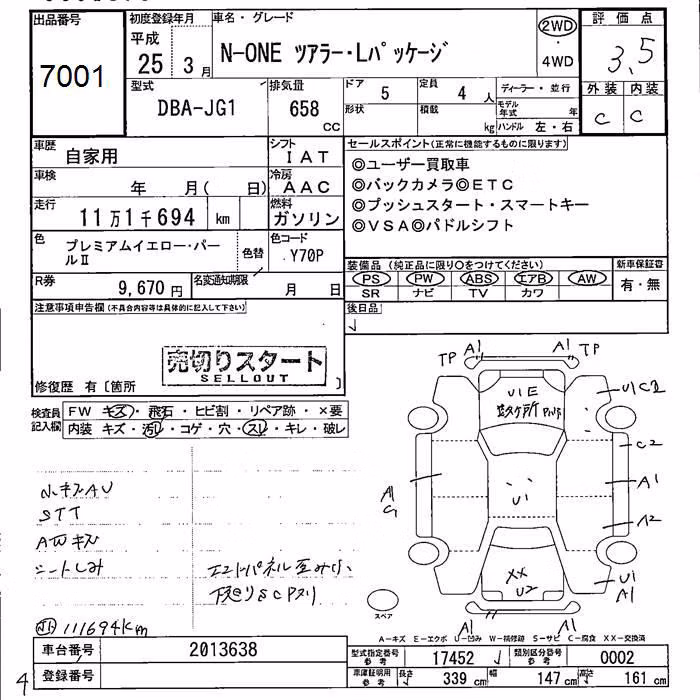 出品番号
7001
初度登録年月
平成
25 3月
車名・グレード
N-ONE ツアラー・Lパッケージ
2WD
・
4WD
評価点
3.5
外装 内装
C C
型式
DBA-JG1
排気量
658
CC
ドア
5
定員
4 人
形状
積載
kg
ディーラー・並行
モデル年式 年
ハンドル 左・右
車歴
自家用
シフト
IAT
車検
年 月( 日)
冷房
AAC
走行
11万1千694 km
燃料
ガソリン
色
プレミアムイエロー・パールⅡ
色替
色コード
Y70P
R券
9,670円
名変通知期限
月 日
セールスポイント(正常に機能するものに限ります)
◎ユーザー買取車
◎バックカメラ◎ETC
◎プッシュスタート・スマートキー
◎VSA◎パドルシフト
装備品 (純正品に限り○をつけてください)
PS PW ABS エアB AW
SR ナビ TV カワ
新車保証書
有・無
後日品
注意事項申告欄(不具合内容等は具体的に記入して下さい)
売切りスタート
SELLOUT
修復歴 有〔箇所 〕
検査員
記入欄
FW キズ・飛石・ヒビ割・リペア跡・×要
内装 キズ・汚レ・コゲ・穴・スレ・キレ・破レ
小キズAU
STT
AWキズ
シートしみ
111694km
TP A1 A1 TP
U1E
U1
C2
A1
A2
A1
G
XX
U2
U1
A1
A1 A1
スペア
A-キズ E-エクボ U-凹み W-補修跡 S-サビ C-腐食 XX-交換済
車台番号
2013638
登録番号
4
型式指定番号
参考
17452
類別区分番号
参考
0002
車庫証明用
参考
長さ 339 cm
幅 147 cm
高さ 161 cm